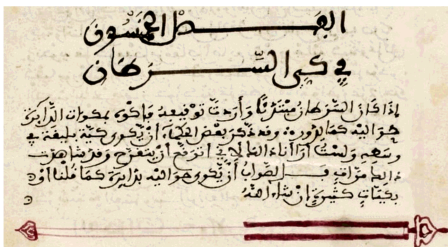 الفصل الخمسون
في كي السرطان
إذا كان السرطان مبتدئا وأردت توقيفه فاكوه بمكواة الدائرة
حواليه كما تدور به وقد ذكر بعض الحكماء أن يكوى كية بليغة في
وسطه ولست أرى أنا ذلك لأني أتوقع أن يتقرح وقد شاهدت
ذلك مرات والصواب أن يكوى حواليه بدائرة كما قلنا أو
بكيات كثيرة إن شاء الله